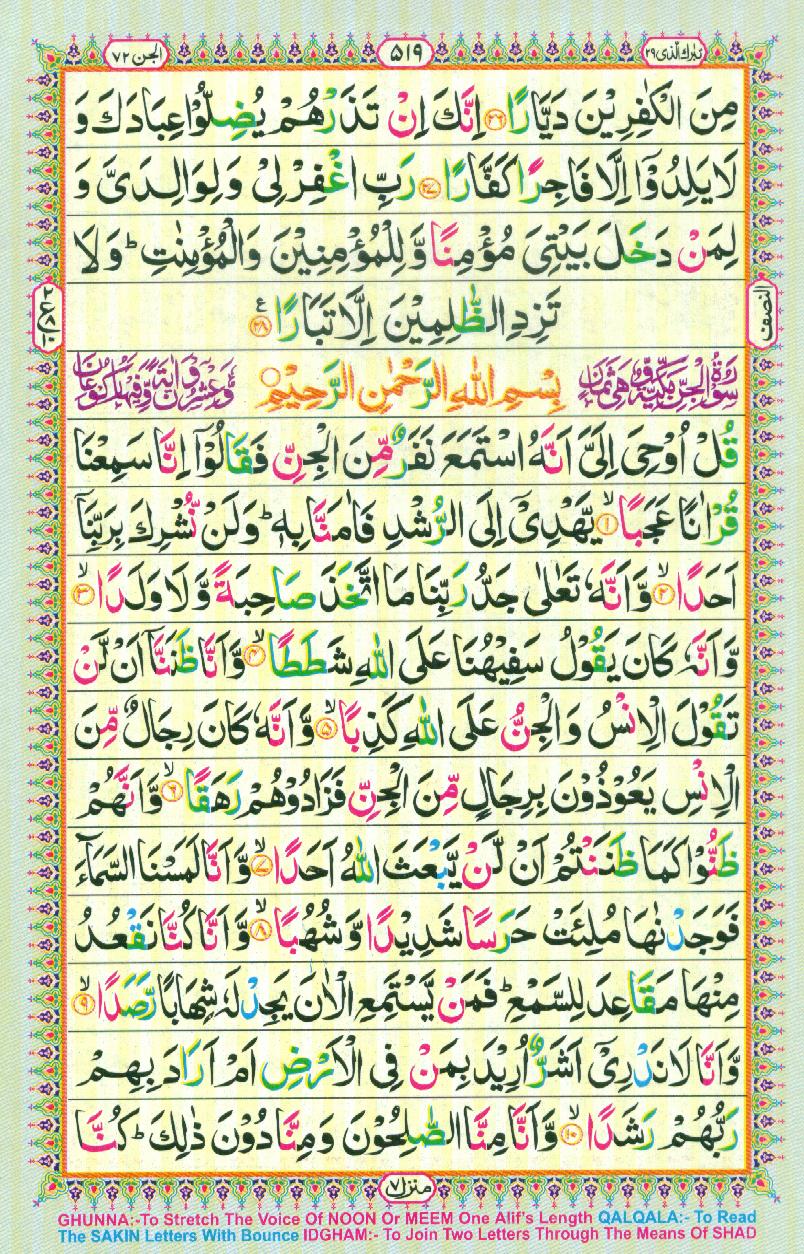 تبٰرك الذی ٢٩
۵۱۹
الجن ٧٢
مِنَ الۡكٰفِرِيۡنَ دَيَّارًا ﴿۲۶﴾ اِنَّكَ اِنۡ تَذَرۡهُمۡ يُضِلُّوۡا عِبَادَكَ وَ
لَا يَلِدُوۡۤا اِلَّا فَاجِرًا كَفَّارًا ﴿۲۷﴾ رَبِّ اغۡفِرۡ لِىۡ وَلِوَالِدَىَّ وَ
لِمَنۡ دَخَلَ بَيۡتِىَ مُؤۡمِنًا وَّلِلۡمُؤۡمِنِيۡنَ وَالۡمُؤۡمِنٰتِؕ وَلَا
تَزِدِ الظّٰلِمِيۡنَ اِلَّا تَبَارًا ﴿۲۸﴾ ع
النصف
سُوۡرَةُ الۡجِنِّ مَكِّيَّةٌ وَّهِىَ ثَمَانٍ بِسۡمِ اللهِ الرَّحۡمٰنِ الرَّحِيۡمِ وَّعِشۡرُوۡنَ اٰيَةً وَّفِيۡهَا رُكُوۡعَانِ
قُلۡ اُوۡحِىَ اِلَىَّ اَنَّهُ اسۡتَمَعَ نَفَرٌ مِّنَ الۡجِنِّ فَقَالُوۡۤا اِنَّا سَمِعۡنَا
قُرۡاٰنًا عَجَبًا ۙ﴿۱﴾ يَّهۡدِىۡۤ اِلَى الرُّشۡدِ فَاٰمَنَّا بِهٖؕ وَلَنۡ نُّشۡرِكَ بِرَبِّنَاۤ
اَحَدًا ۙ﴿۲﴾ وَّاَنَّهٗ تَعٰلٰى جَدُّ رَبِّنَا مَا اتَّخَذَ صَاحِبَةً وَّلَا وَلَدًا ۙ﴿۳﴾
وَّاَنَّهٗ كَانَ يَقُوۡلُ سَفِيۡهُنَا عَلَى اللّٰهِ شَطَطًا ۙ﴿۴﴾ وَّاَنَّا ظَنَنَّاۤ اَنۡ لَّنۡ
تَقُوۡلَ الۡاِنۡسُ وَالۡجِنُّ عَلَى اللّٰهِ كَذِبًا ۙ﴿۵﴾ وَّاَنَّهٗ كَانَ رِجَالٌ مِّنَ
الۡاِنۡسِ يَعُوۡذُوۡنَ بِرِجَالٍ مِّنَ الۡجِنِّ فَزَادُوۡهُمۡ رَهَقًا ۙ﴿۶﴾ وَّاَنَّهُمۡ
ظَنُّوۡا كَمَا ظَنَنۡتُمۡ اَنۡ لَّنۡ يَّبۡعَثَ اللّٰهُ اَحَدًا ۙ﴿۷﴾ وَّاَنَّا لَمَسۡنَا السَّمَآءَ
فَوَجَدۡنٰهَا مُلِئَتۡ حَرَسًا شَدِيۡدًا وَّشُهُبًا ۙ﴿۸﴾ وَّاَنَّا كُنَّا نَقۡعُدُ
مِنۡهَا مَقَاعِدَ لِلسَّمۡعِؕ فَمَنۡ يَّسۡتَمِعِ الۡاٰنَ يَجِدۡ لَهٗ شِهَابًا رَّصَدًا ۙ﴿۹﴾
وَّاَنَّا لَا نَدۡرِىۡۤ اَشَرٌّ اُرِيۡدَ بِمَنۡ فِى الۡاَرۡضِ اَمۡ اَرَادَ بِهِمۡ
رَبُّهُمۡ رَشَدًا ۙ﴿۱۰﴾ وَّاَنَّا مِنَّا الصّٰلِحُوۡنَ وَمِنَّا دُوۡنَ ذٰلِكَؕ كُنَّا
منزل ٧
GHUNNA:-To Stretch The Voice Of NOON Or MEEM One Alif's Length QALQALA:- To Read
The SAKIN Letters With Bounce IDGHAM:- To Join Two Letters Through The Means Of SHAD